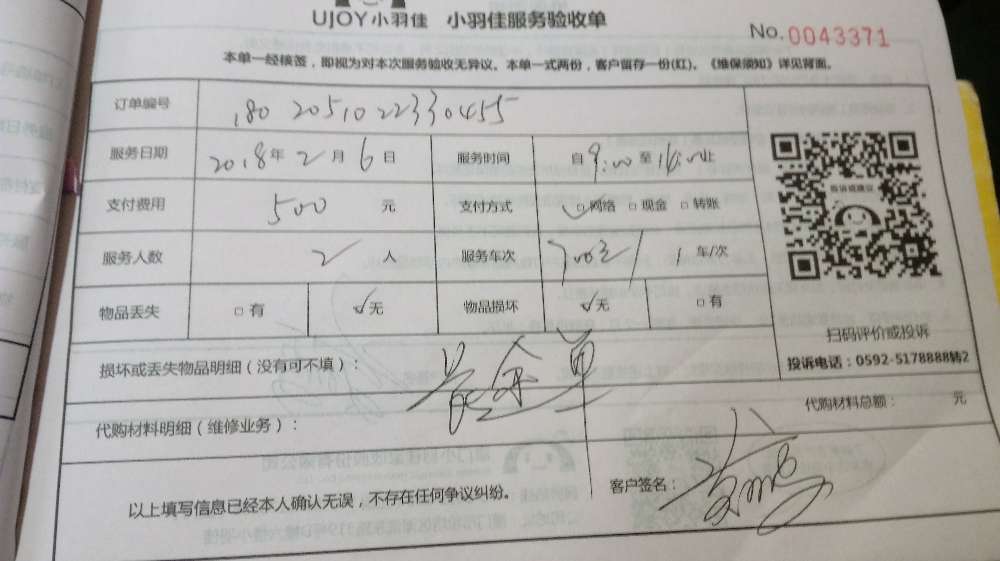 UJOY小羽佳 小羽佳服务验收单
No.0043371
本单一经核签，即视为对本次服务验收无异议。本单一式两份，客户留存一份(红)。《维保须知》详见背面。
订单编号 180 2051022330455
服务日期 2018年2月6日 服务时间 自9:00至16:00止
支付费用 500元 支付方式 ✓□网络 □现金 □转账
服务人数 2人 服务车次 1车/次
物品丢失 □有 ✓无 物品损坏 ✓无 □有
投诉或建议
扫码评价或投诉
投诉电话：0592-5178888转2
损坏或丢失物品明细（没有可不填）：
代购材料明细（维修业务）：
代购材料总额： 元
以上填写信息已经本人确认无误，不存在任何争议纠纷。
客户签名：